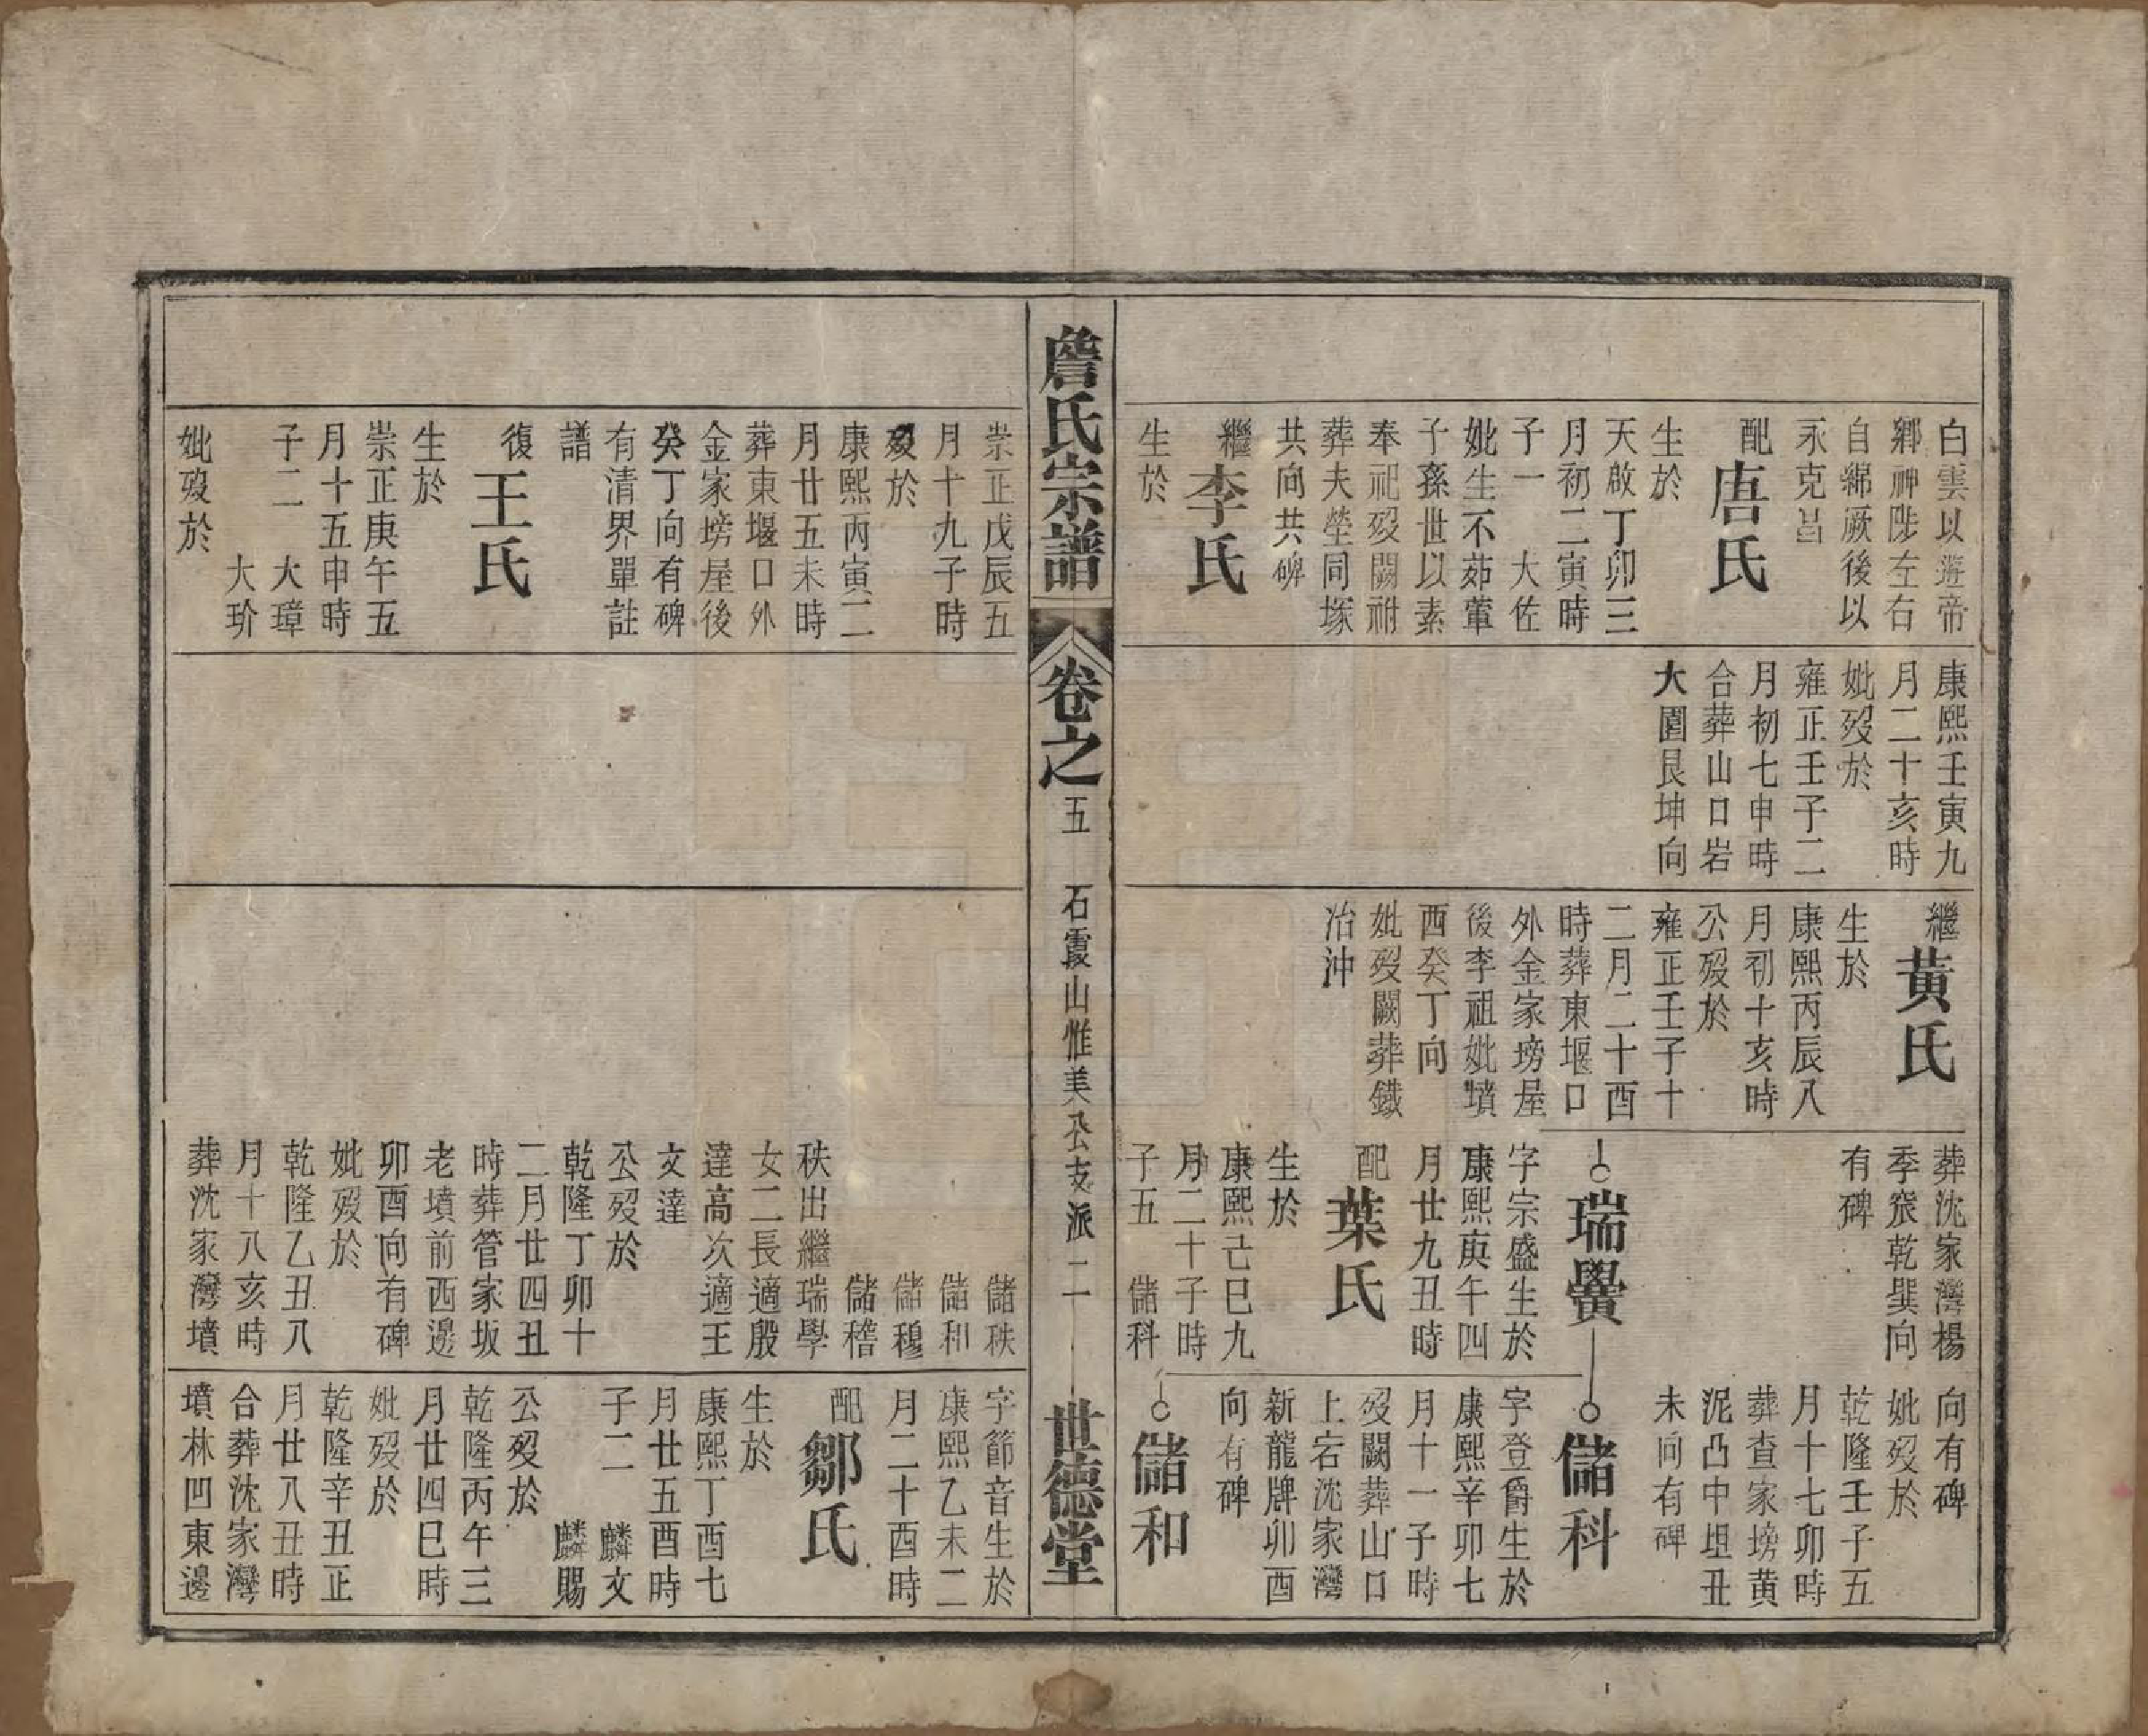 白雲以遊帝
鄉神陟左右
自綿厥後以
永克昌
配唐氏
生於
天啟丁卯三
月初二寅時
子一　大佐
妣生不茹葷
子孫世以素
奉祀歿闕祔
葬夫塋同塚
共向共碑
繼李氏
生於
康熙壬寅九
月二十亥時
妣歿於
雍正壬子二
月初七申時
合葬山口岩
大園艮坤向
繼黃氏
生於
康熙丙辰八
月初十亥時
公歿於
雍正壬子十
二月二十酉
時葬東堰口
外金家塝屋
後李祖妣墳
西癸丁向
妣歿闕葬鐵
冶沖
葬沈家灣楊
季窽乾巽向
有碑
瑞黌
字宗盛生於
康熙庚午四
月廿九丑時
配葉氏
生於
康熙己巳九
月二十子時
子五　儲科
向有碑
妣歿於
乾隆壬子五
月十七卯時
葬查家塝黃
泥凸中坦丑
未向有碑
儲科
字登爵生於
康熙辛卯七
月十一子時
歿闕葬山口
上宕沈家灣
新龍牌卯酉
向有碑
儲和
詹氏宗譜
卷之五
石霞山惟美公支派　二
世德堂
崇正戊辰五
月十九子時
歿於
康熙丙寅二
月廿五未時
葬東堰口外
金家塝屋後
癸丁向有碑
有清界單註
譜
復王氏
生於
崇正庚午五
月十五申時
子二　大璋
大玠
妣歿於
儲秩
儲和
儲穆
儲稽
秩出繼瑞學
女二長適殷
達高次適王
文達
公歿於
乾隆丁卯十
二月廿四丑
時葬管家坂
老墳前西邊
卯酉向有碑
妣歿於
乾隆乙丑八
月十八亥時
葬沈家灣墳
字節音生於
康熙乙未二
月二十酉時
配鄒氏
生於
康熙丁酉七
月廿五酉時
子二　麟文
麟賜
公歿於
乾隆丙午三
月廿四巳時
妣歿於
乾隆辛丑正
月廿八丑時
合葬沈家灣
墳林凹東邊